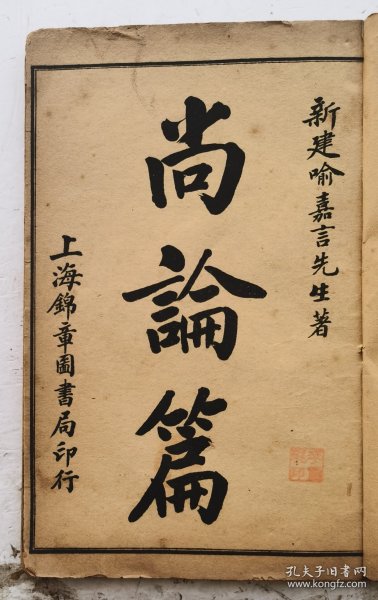 新建喻嘉言先生著
尚論篇
上海錦章圖書局印行
孔夫子旧书网